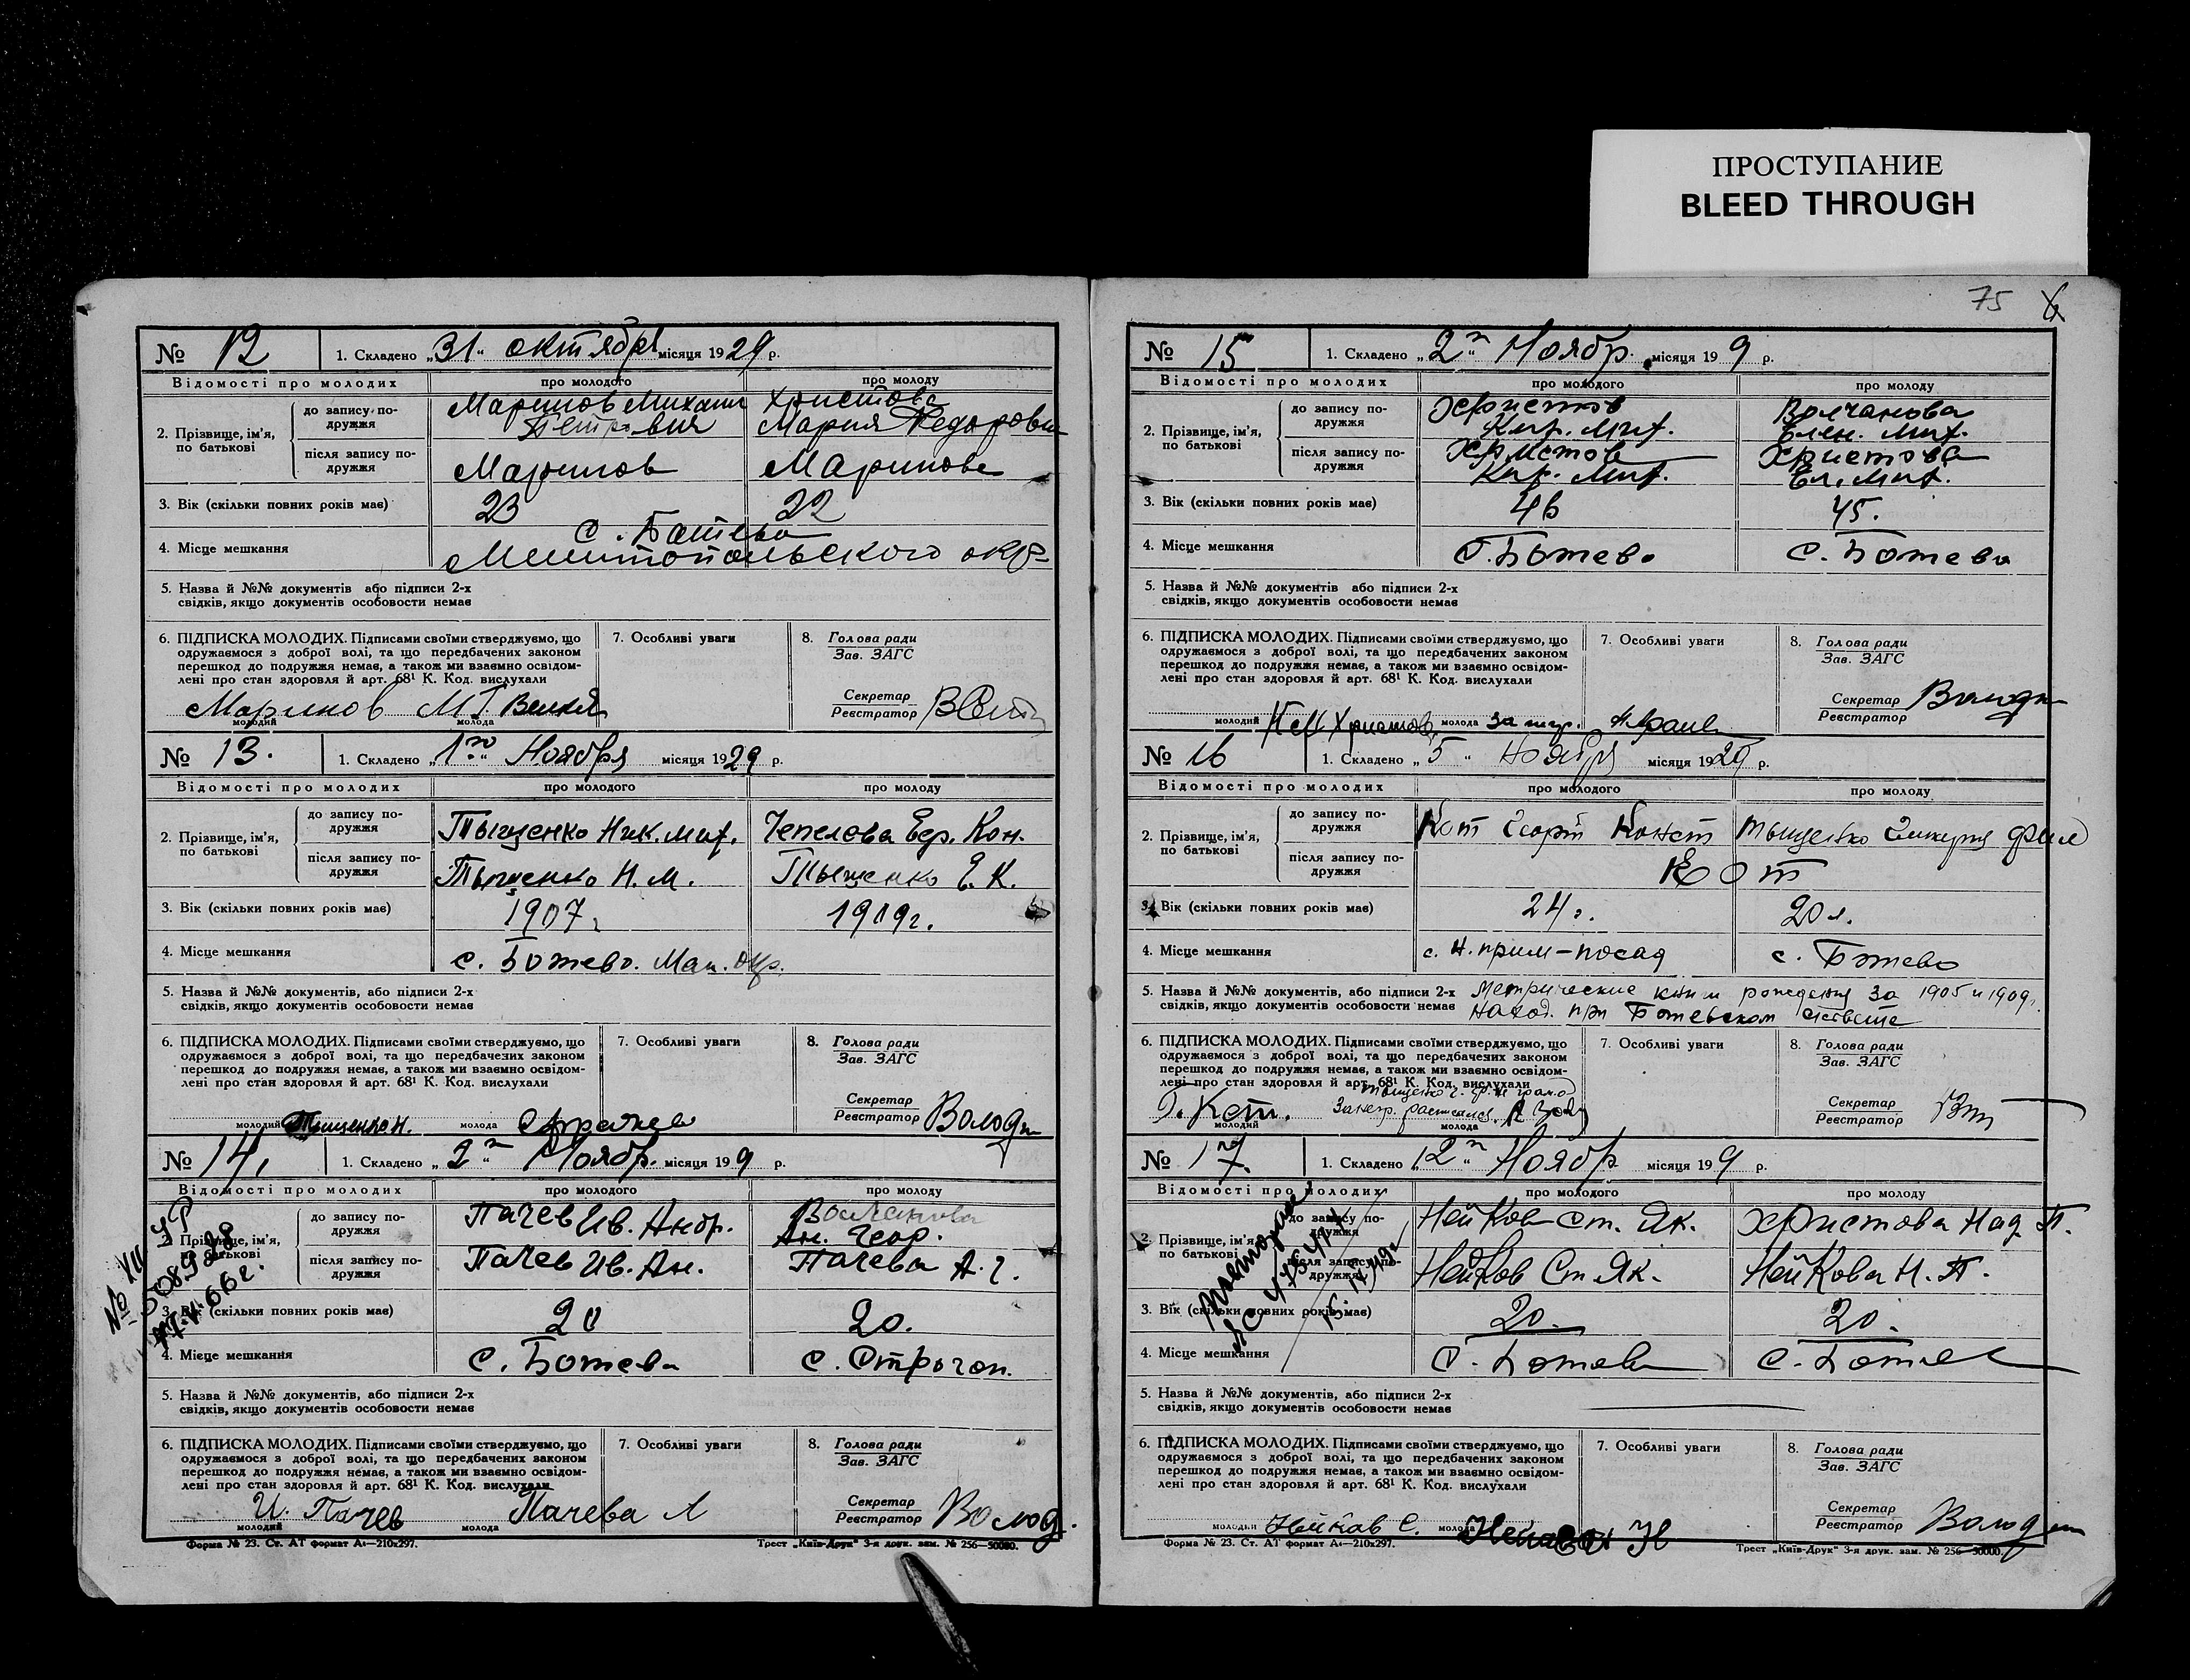 ПРОСТУПАНИЕ
BLEED THROUGH
75
№ 12
1. Складено „31“ октября місяця 1929 р.
Відомості про молодих
про молодого
про молоду
2. Прізвище, ім'я, по батькові
до запису подружжя
Маринов Михаил Петрович
Христова Мария Федоровн
після запису подружжя
Маринов
Маринова
3. Вік (скільки повних років має)
23
22
4. Місце мешкання
с. Ботево
Мелитопольского окр
5. Назва й №№ документів або підписи 2-х
свідків, якщо документів особовости немає
6. ПІДПИСКА МОЛОДИХ. Підписами своїми стверджуємо, що
одружаємося з доброї волі, та що передбачених законом
перешкод до подружжя немає, а також ми взаємно освідом-
лені про стан здоровля й арт. 68¹ К. Код. вислухали
Маринов М
молодий
молода
7. Особливі уваги
8. Голова ради
Зав. ЗАГС
Секретар
Реєстратор
№ 13.
1. Складено „1го“ Ноября місяця 1929 р.
Відомості про молодих
про молодого
про молоду
2. Прізвище, ім'я, по батькові
до запису подружжя
Тыщенко Ник. Мих.
Чепелова Евр. Кон.
після запису подружжя
Тыщенко Н. М.
Тыщенко Е. К.
3. Вік (скільки повних років має)
1907 г
1909 г.
4. Місце мешкання
с. Ботево. Мел. окр.
5. Назва й №№ документів, або підписи 2-х
свідків, якщо документів особовости немає
6. ПІДПИСКА МОЛОДИХ. Підписами своїми стверджуємо, що
одружаємося з доброї волі, та що передбачених законом
перешкод до подружжя немає, а також ми взаємно освідом-
лені про стан здоровля й арт. 68¹ К. Код. вислухали
молодий Тыщенко Н.
молода
7. Особливі уваги
8. Голова ради
Зав. ЗАГС
Секретар
Реєстратор Володи
№ 14.
1. Складено „2го“ Ноябр. місяця 19 9 р.
Відомості про молодих
про молодого
про молоду
2. Прізвище, ім'я, по батькові
до запису подружжя
Пачев Ив. Андр.
Волканова Ан. Геор.
після запису подружжя
Пачев Ив. Ан.
Пачева А. Г.
3. Вік (скільки повних років має)
20
20.
4. Місце мешкання
С. Ботево
С. Строган.
5. Назва й №№ документів, або підписи 2-х
свідків, якщо документів особовости немає
6. ПІДПИСКА МОЛОДИХ. Підписами своїми стверджуємо, що
одружаємося з доброї волі, та що передбачених законом
перешкод до подружжя немає, а також ми взаємно освідом-
лені про стан здоровля й арт. 68¹ К. Код. вислухали
И. Пачев
Пачева А
молодий
молода
7. Особливі уваги
8. Голова ради
Зав. ЗАГС
Секретар
Реєстратор Волод.
Форма № 23. Ст. АТ формат А₄—210х297.
Трест „Київ-Друк“ 3-я друк. зам. № 256—50000.
№ 15
1. Складено „2го“ Ноябр. місяця 19 9 р.
Відомості про молодих
про молодого
про молоду
2. Прізвище, ім'я, по батькові
до запису подружжя
Христов Кир. Мих.
Волчанова Елен. Мих.
після запису подружжя
Христов Кир. Мих.
Христова Ел. Мих.
3. Вік (скільки повних років має)
46
45.
4. Місце мешкання
С. Ботево
С. Ботево
5. Назва й №№ документів або підписи 2-х
свідків, якщо документів особовости немає
6. ПІДПИСКА МОЛОДИХ. Підписами своїми стверджуємо, що
одружаємося з доброї волі, та що передбачених законом
перешкод до подружжя немає, а також ми взаємно освідом-
лені про стан здоровля й арт. 68¹ К. Код. вислухали
молодий Христов
молода за негр.
7. Особливі уваги
8. Голова ради
Зав. ЗАГС
Секретар
Реєстратор Володи
№ 16
1. Складено „5“ ноября місяця 1929 р.
Відомості про молодих
про молодого
про молоду
2. Прізвище, ім'я, по батькові
до запису подружжя
Кот Георг Конст
Тыщенко Фил
після запису подружжя
Кот
3. Вік (скільки повних років має)
24 г.
20 л.
4. Місце мешкання
с. Н. прим-посад
с. Ботево
5. Назва й №№ документів, або підписи 2-х
свідків, якщо документів особовости немає
Метрические книги рождения за 1905 и 1909 г.
наход. при Ботевском
6. ПІДПИСКА МОЛОДИХ. Підписами своїми стверджуємо, що
одружаємося з доброї волі, та що передбачених законом
перешкод до подружжя немає, а також ми взаємно освідом-
лені про стан здоровля й арт. 68¹ К. Код. вислухали
Г. Кот.
За негр. расписался
молодий
молода
7. Особливі уваги
8. Голова ради
Зав. ЗАГС
Секретар
Реєстратор
№ 17.
1. Складено „12“ Ноябр місяця 19 9 р.
Відомості про молодих
про молодого
про молоду
2. Прізвище, ім'я, по батькові
до запису подружжя
Нейков Ст. Як.
Христова Над. П.
після запису подружжя
Нейков Ст. Як.
Нейкова Н. П.
3. Вік (скільки повних років має)
20.
20.
4. Місце мешкання
С. Ботево
С. Ботево
5. Назва й №№ документів, або підписи 2-х
свідків, якщо документів особовости немає
6. ПІДПИСКА МОЛОДИХ. Підписами своїми стверджуємо, що
одружаємося з доброї волі, та що передбачених законом
перешкод до подружжя немає, а також ми взаємно освідом-
лені про стан здоровля й арт. 68¹ К. Код. вислухали
молодий Нейков С.
молода
7. Особливі уваги
8. Голова ради
Зав. ЗАГС
Секретар
Реєстратор Володи
Форма № 23. Ст. АТ формат А₄—210х297.
Трест „Київ-Друк“ 3-я друк. зам. № 256—50000.